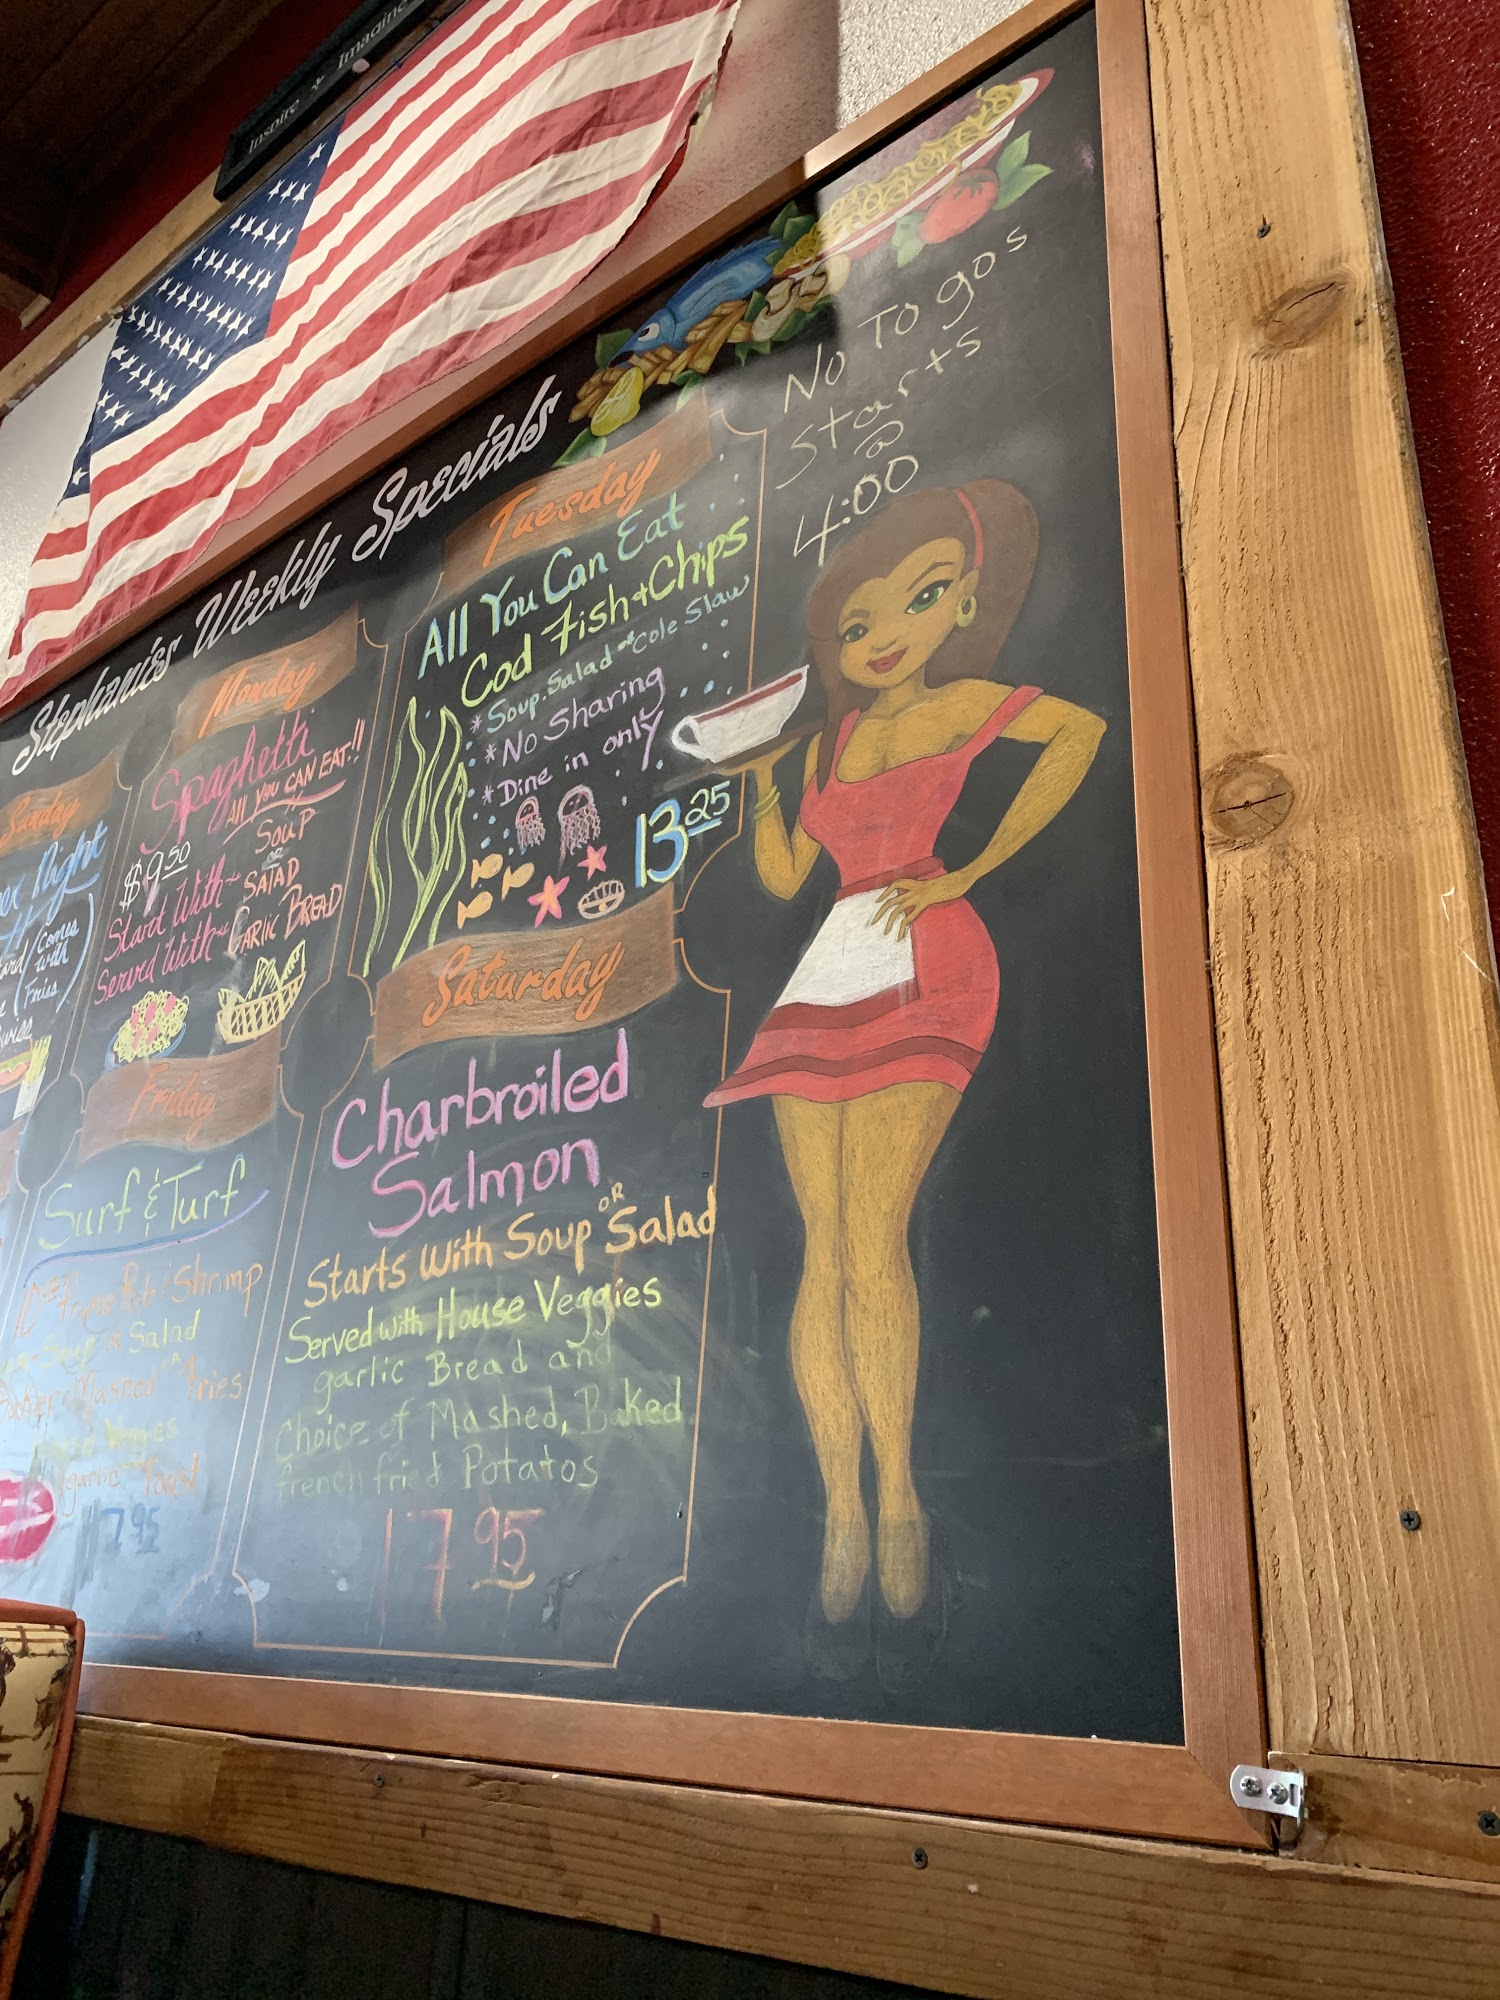 Inspire
Imagine
Stephanies Weekly Specials
No To gos
Starts
@
4:00
Sunday
Night
(Comes
with
Fries)
Monday
Spaghetti
All you CAN EAT!!
$9.50
Start With SOUP
OR
SALAD
Served With Garlic BREAD
Tuesday
All You Can Eat
Cod Fish & Chips
* Soup. Salad or Cole Slaw
* No Sharing
* Dine in only
13.25
Friday
Surf & Turf
Shrimp
Salad
Mashed or Fries
Veggies
garlic Toast
17.95
Saturday
Charbroiled
Salmon
Starts With Soup OR Salad
Served with House Veggies
garlic Bread and
Choice of Mashed, Baked
french fried Potatos
17.95